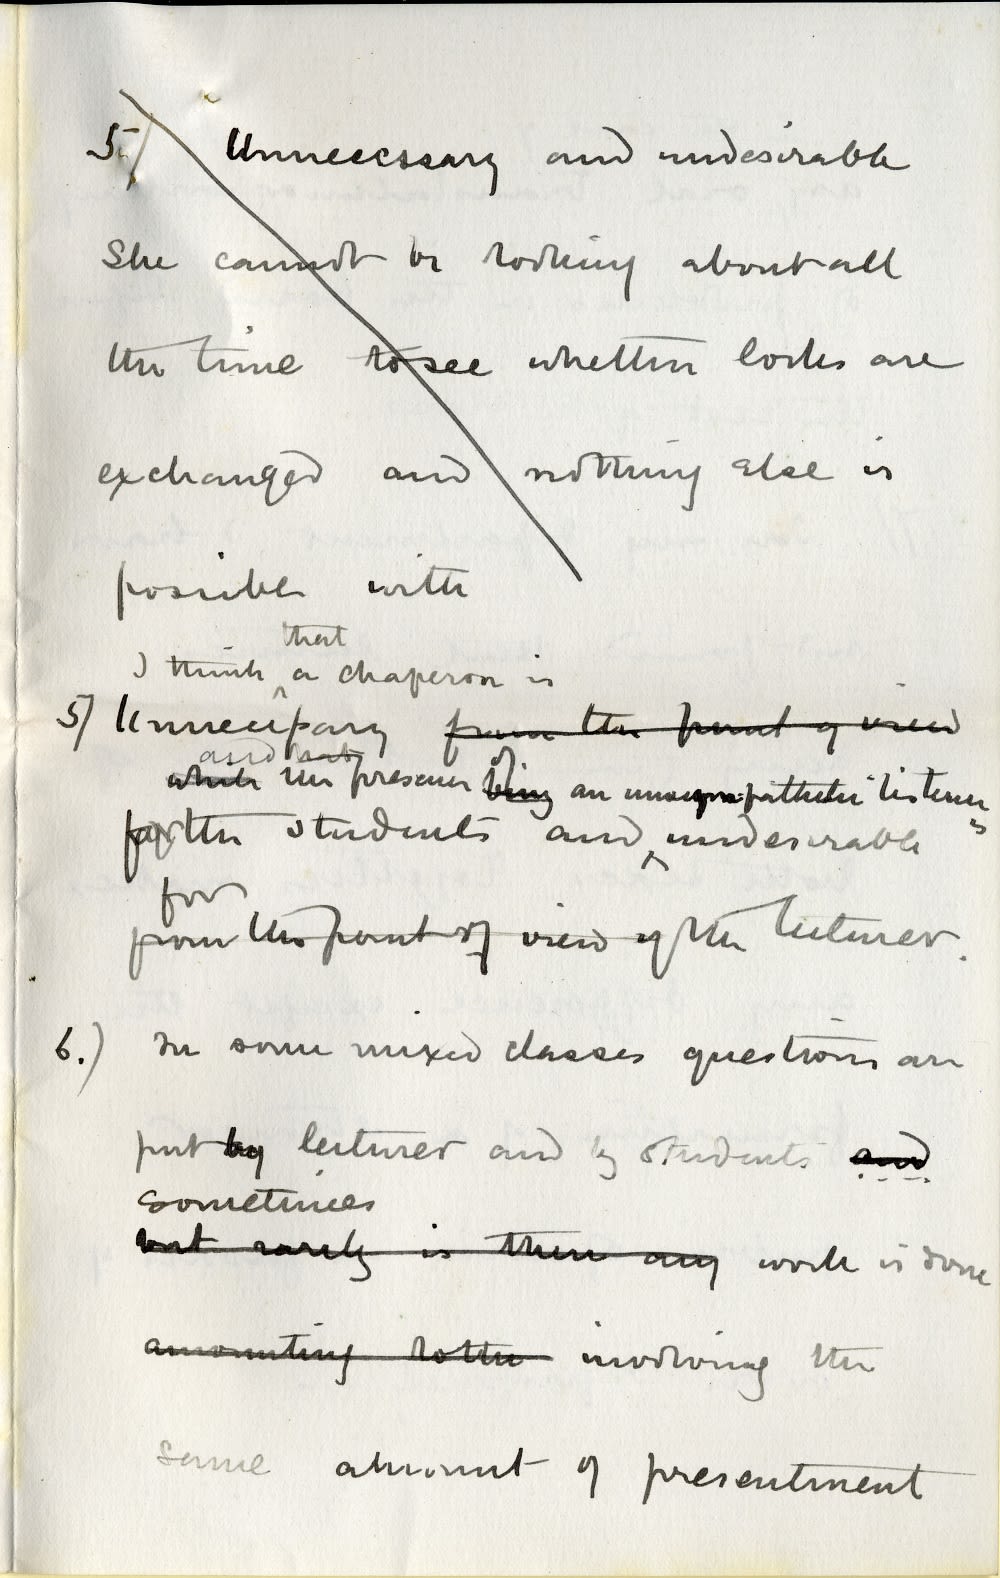 5./ Unnecessary and undesirable
She cannot be looking about all
the time to see whether looks are
exchanged and nothing else is
possible with
that
I think a chaperon is
5/ Unnecessary from the point of view
and that
while her presence being an unsympathetic listener
for the students and undesirable
for
from the point of view of the lecturer.
6.) In some mixed classes questions are
put by lecturer and by students and
sometimes
but rarely is there any work is done
amounting to the involving the
same amount of presentment